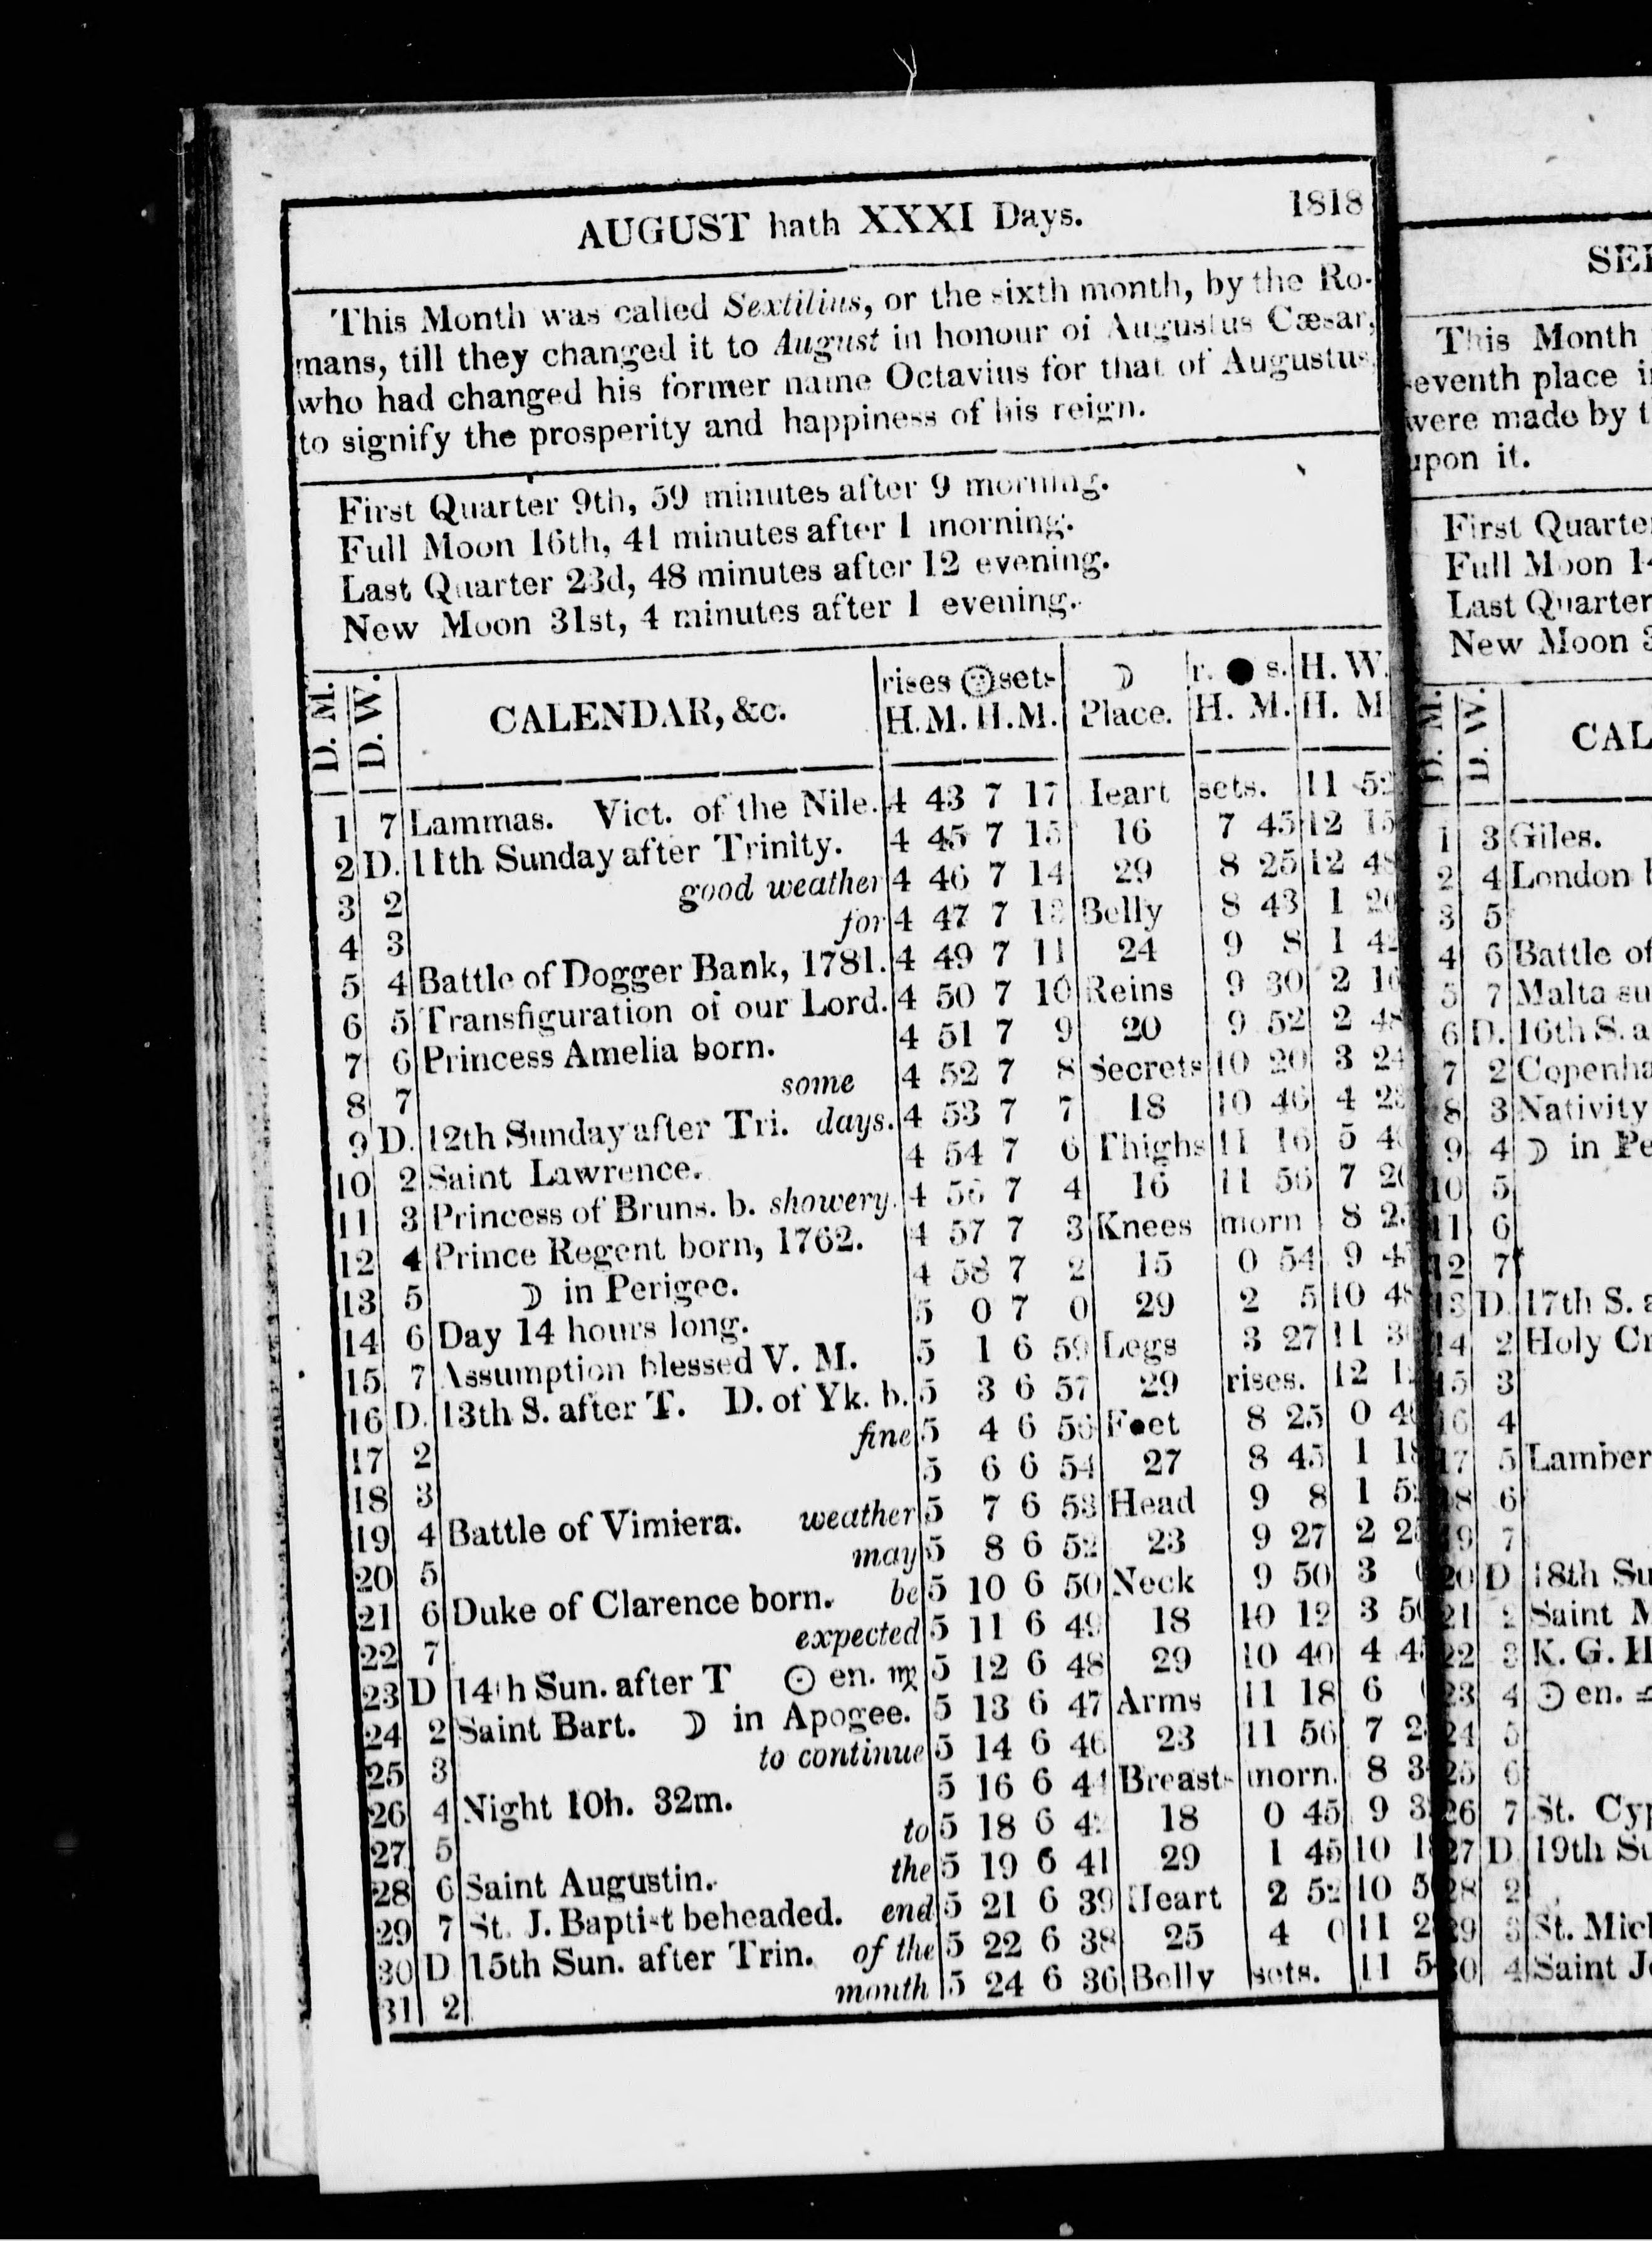 AUGUST hath XXXI Days. 1818
This Month was called Sextilius, or the sixth month, by the Ro-
mans, till they changed it to August in honour of Augustus Cæsar,
who had changed his former name Octavius for that of Augustus,
to signify the prosperity and happiness of his reign.
First Quarter 9th, 59 minutes after 9 morning.
Full Moon 16th, 41 minutes after 1 morning.
Last Quarter 23d, 48 minutes after 12 evening.
New Moon 31st, 4 minutes after 1 evening.
D. M. D. W. CALENDAR, &c. rises ☉ sets ☽ r. ● s. H. W.
H.M. H.M. Place. H. M. H. M
1 7 Lammas. Vict. of the Nile. 4 43 7 17 Ieart sets. 11 52
2 D. 11th Sunday after Trinity. 4 45 7 15 16 7 45 12 15
3 2 good weather 4 46 7 14 29 8 25 12 48
4 3 for 4 47 7 13 Belly 8 43 1 20
5 4 Battle of Dogger Bank, 1781. 4 49 7 11 24 9 8 1 4
6 5 Transfiguration of our Lord. 4 50 7 10 Reins 9 30 2 16
7 6 Princess Amelia born. 4 51 7 9 20 9 52 2 48
8 7 some 4 52 7 8 Secrets 10 20 3 24
9 D. 12th Sunday after Tri. days. 4 53 7 7 18 10 46 4 23
10 2 Saint Lawrence. 4 54 7 6 Thighs 11 16 5 4
11 3 Princess of Bruns. b. showery. 4 56 7 4 16 11 56 7 20
12 4 Prince Regent born, 1762. 4 57 7 3 Knees morn 8 2
13 5 ☽ in Perigee. 4 58 7 2 15 0 54 9 4
14 6 Day 14 hours long. 5 0 7 0 29 2 5 10 48
15 7 Assumption blessed V. M. 5 1 6 59 Legs 3 27 11 3
16 D. 13th S. after T. D. of Yk. b. 5 3 6 57 29 rises. 12 1
17 2 fine 5 4 6 56 Feet 8 25 0 4
18 3 5 6 6 54 27 8 45 1 18
19 4 Battle of Vimiera. weather 5 7 6 53 Head 9 8 1 5
20 5 may 5 8 6 52 23 9 27 2 2
21 6 Duke of Clarence born. be 5 10 6 50 Neck 9 50 3
22 7 expected 5 11 6 49 18 10 12 3 5
23 D 14th Sun. after T ☉ en. ♍ 5 12 6 48 29 10 40 4 4
24 2 Saint Bart. ☽ in Apogee. 5 13 6 47 Arms 11 18 6
25 3 to continue 5 14 6 46 23 11 56 7 2
26 4 Night 10h. 32m. 5 16 6 44 Breast morn. 8 3
27 5 to 5 18 6 4 18 0 45 9 3
28 6 Saint Augustin. the 5 19 6 41 29 1 45 10 1
29 7 St. J. Baptist beheaded. end 5 21 6 39 Heart 2 52 10 5
30 D 15th Sun. after Trin. of the 5 22 6 38 25 4 0 11 2
31 2 month 5 24 6 36 Belly sets. 11 5
SE
This Month
seventh place i
were made by t
upon it.
First Quarte
Full Moon 1
Last Quarter
New Moon 3
D. M. D. W. CAL
1 3 Giles.
2 4 London
3 5
4 6 Battle of
5 7 Malta su
6 D. 16th S. a
7 2 Copenha
8 3 Nativity
9 4 ☽ in Pe
10 5
11 6
12 7
13 D. 17th S. a
14 2 Holy Cr
15 3
16 4
17 5 Lamber
18 6
19 7
20 D 18th Su
21 2 Saint M
22 3 K. G. H
23 4 ☉ en. ♎
24 5
25 6
26 7 St. Cyp
27 D 19th Su
28 2
29 3 St. Mich
30 4 Saint Je